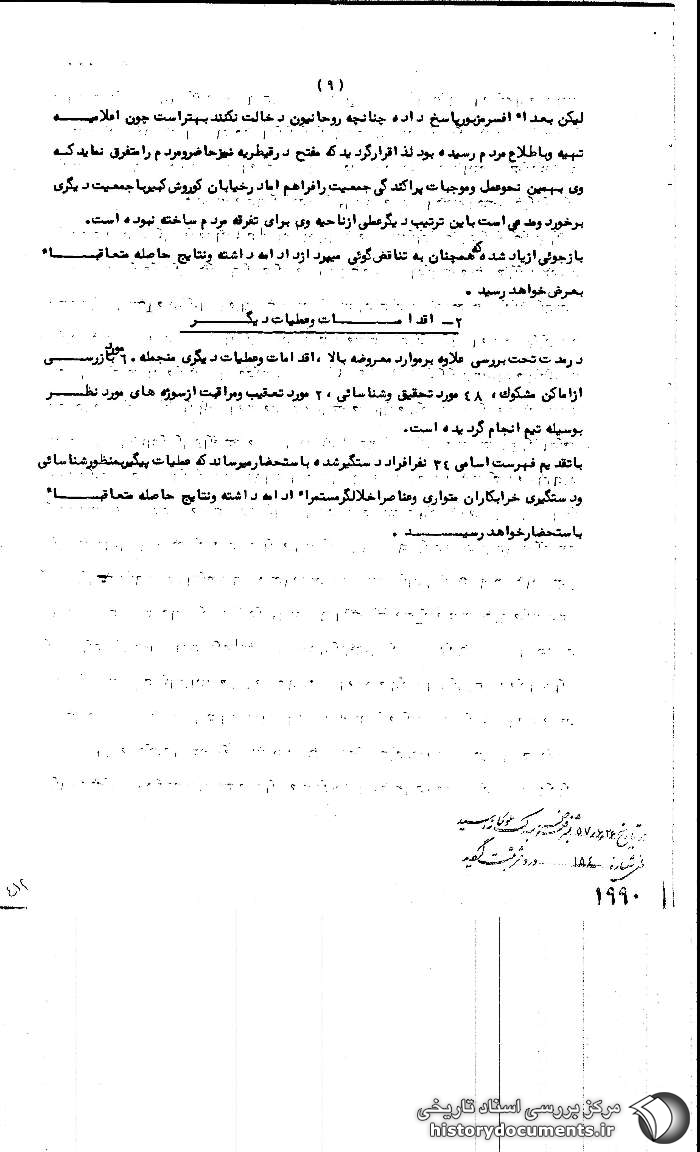 (۹)
لیکن بعداً افسر مزبور پاسخ داده چنانچه روحانیون دخالت نکنند بهتر است چون اعلامیه
تهیه و باطلاع مردم رسیده بود لذا قرار گردید که مفتح در قیطریه نیز حاضر و مردم را متفرق نماید که
وی بهمین نحو عمل و موجبات پراکندگی جمعیت را فراهم اما در خیابان کوروش کبیر با جمعیت دیگری
برخورد و مدعی است باین ترتیب دیگر عملی از ناحیه وی برای تفرقه مردم ساخته نبوده است.
بازجوئی از یاد شده که همچنان به تناقض گوئی میپردازد ادامه داشته و نتایج حاصله متعاقباً
بعرض خواهد رسید.
۲- اقدامات و عملیات دیگر
در مدت تحت بررسی علاوه بر موارد معروضه بالا، اقدامات و عملیات دیگری منجمله ۶۰ مورد بازرسی
از اماکن مشکوک، ۴۸ مورد تحقیق و شناسائی، ۲ مورد تعقیب و مراقبت از سوژه های مورد نظر
بوسیله تیم انجام گردیده است.
با تقدیم فهرست اسامی ۳۴ نفر افراد دستگیر شده باستحضار میرساند که عملیات پیگیر بمنظور شناسائی
و دستگیری خرابکاران متواری و عناصر اخلالگر مستمراً ادامه داشته و نتایج حاصله متعاقباً
باستحضار خواهد رسید.
در تاریخ
شماره ثبت گردید
۱۹۹۰
مرکز بررسی اسناد تاریخی
historydocuments.ir